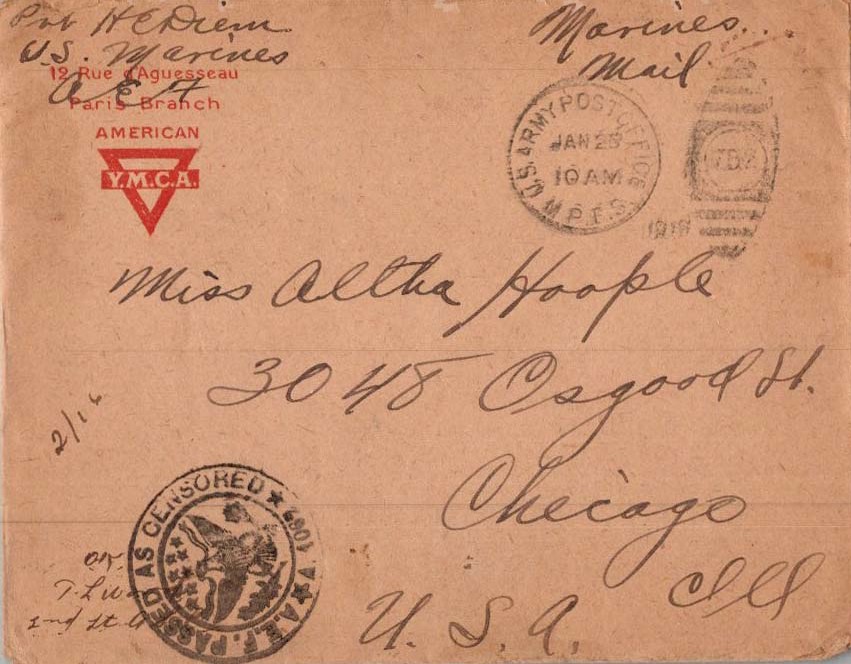 Pvt HC Diem
U.S. Marines
12 Rue d'Aguesseau
A E F
Paris Branch
AMERICAN
Y.M.C.A.
Marines
Mail
U.S. ARMY POST OFFICE
JAN 25
10 AM
M.P.E.S.
1919
Miss Altha Hoople
3048 Osgood St.
Chicago
Ill
U. S. A.
2/16
A.E.F. PASSED AS CENSORED
OK.
2nd Lt